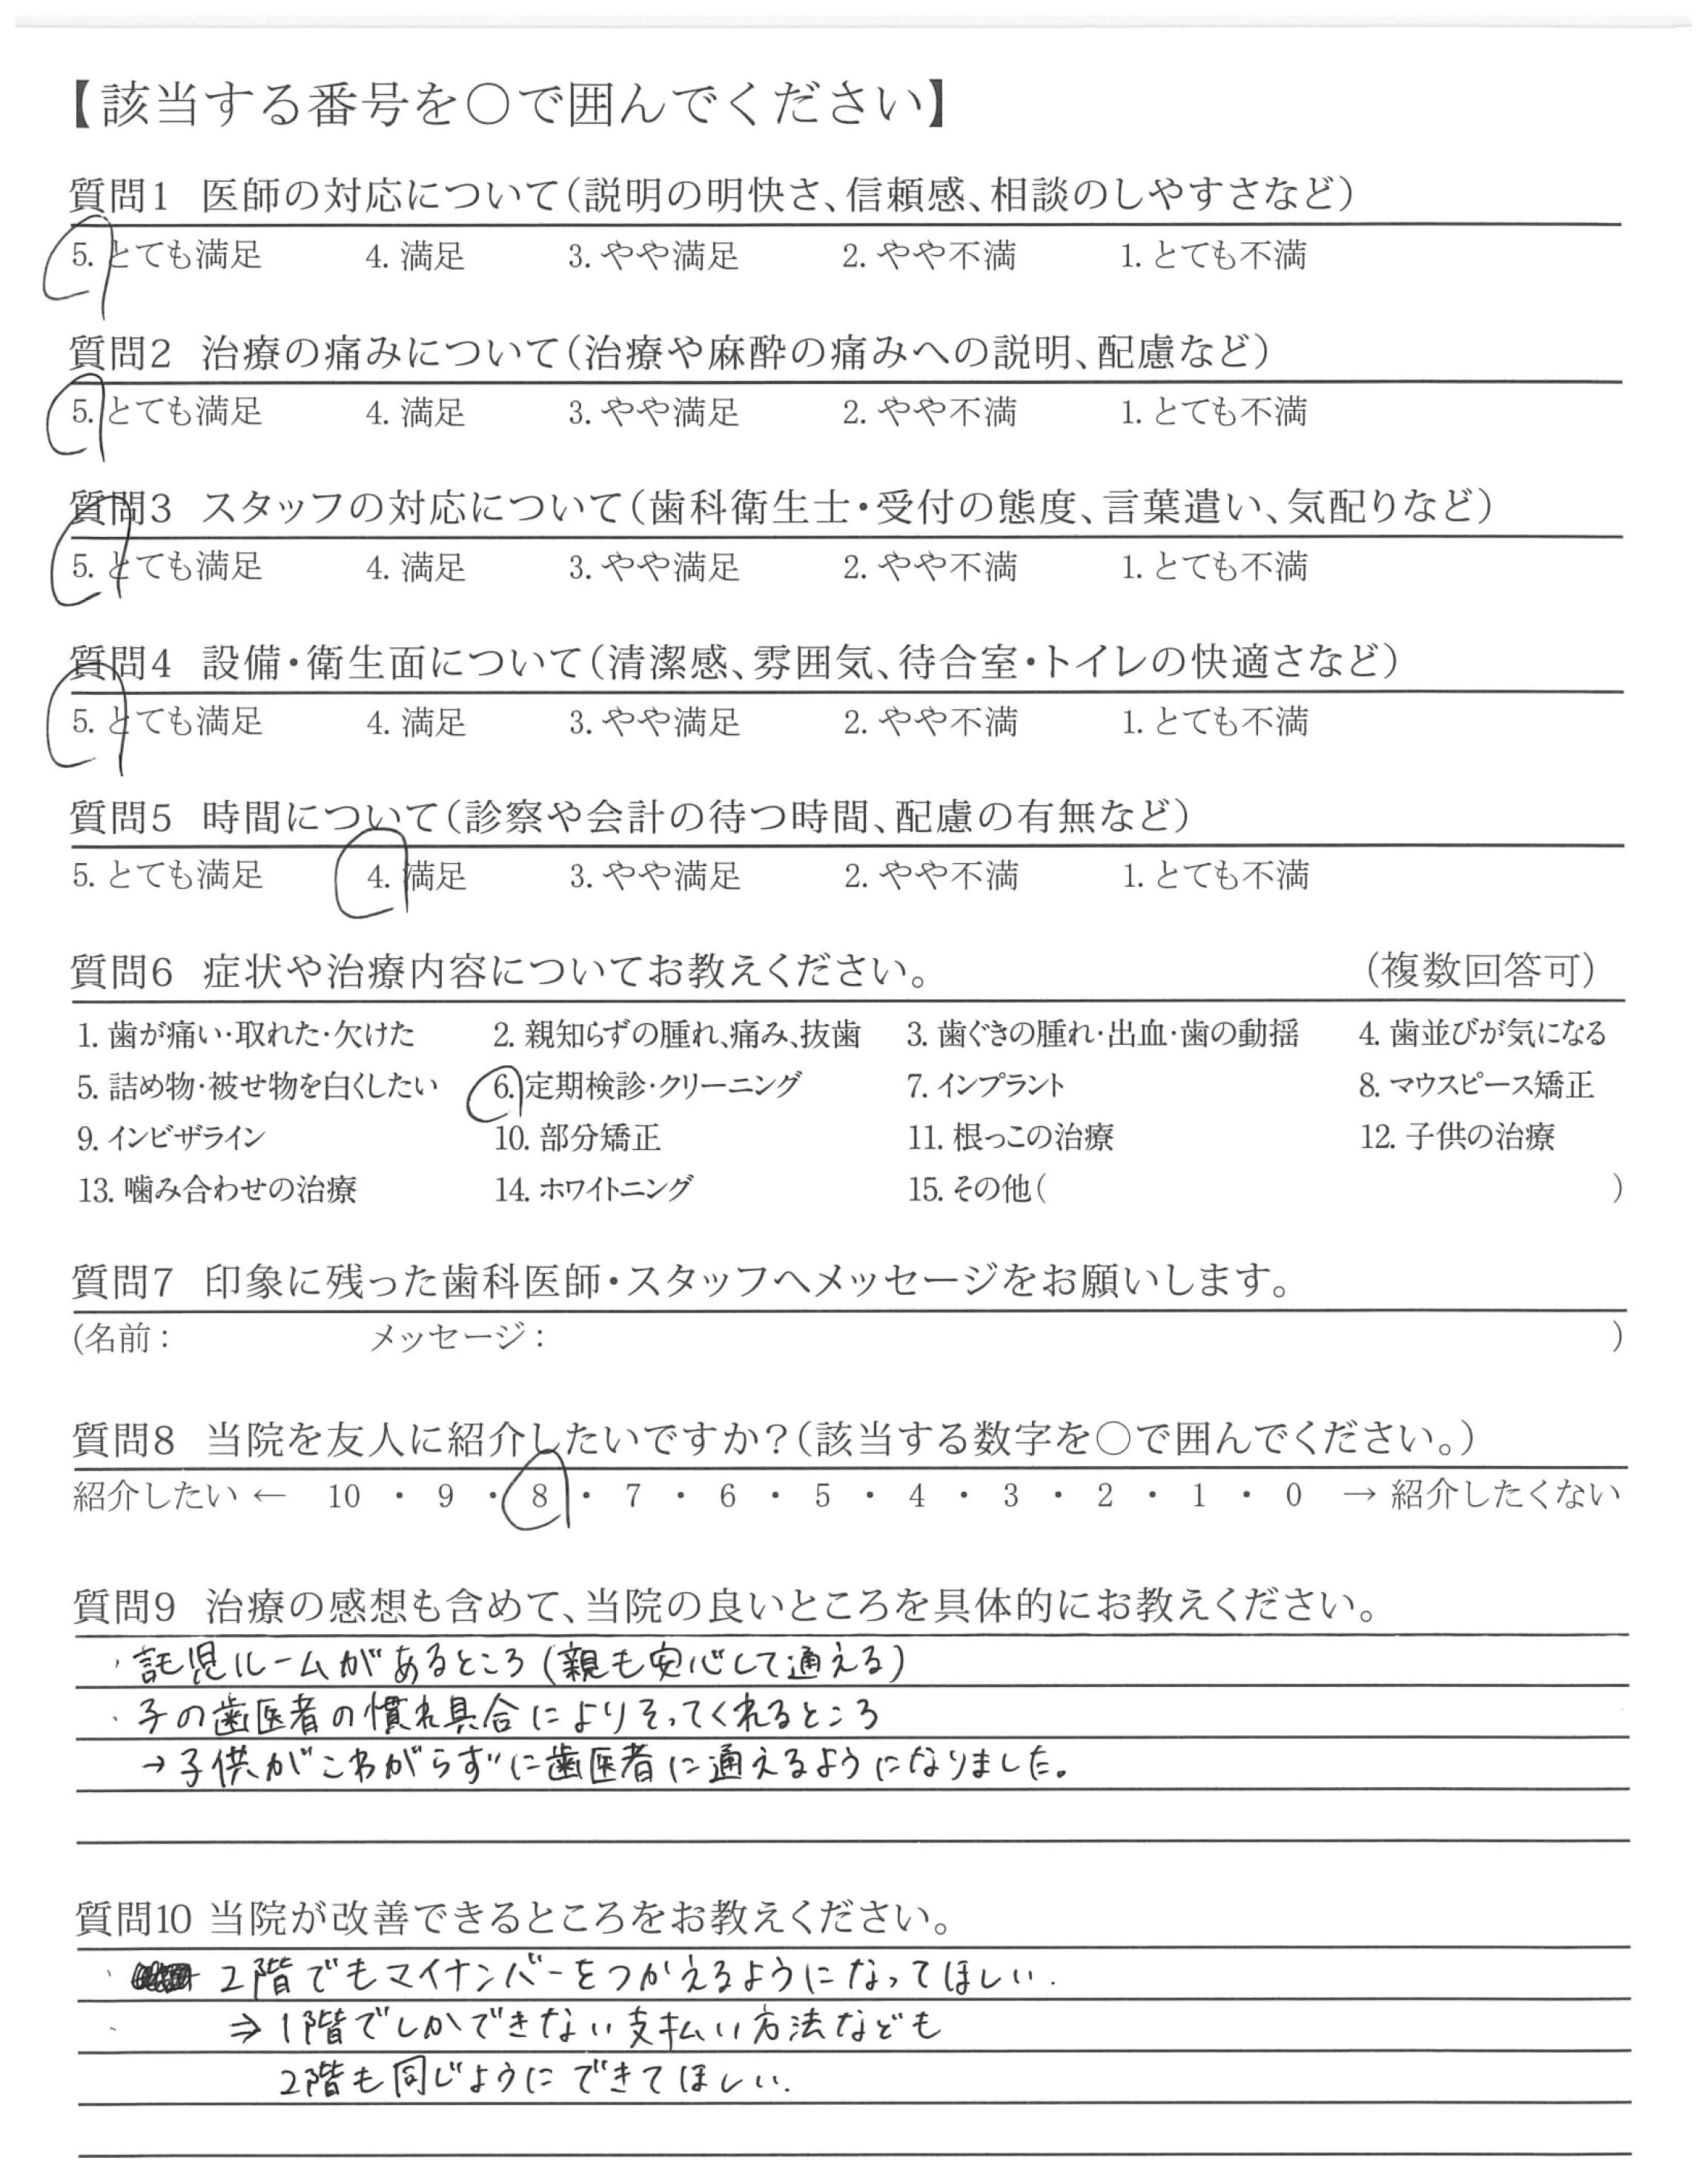 【該当する番号を○で囲んでください】
質問1 医師の対応について（説明の明快さ、信頼感、相談のしやすさなど）
5. とても満足 4. 満足 3. やや満足 2. やや不満 1. とても不満
質問2 治療の痛みについて（治療や麻酔の痛みへの説明、配慮など）
5. とても満足 4. 満足 3. やや満足 2. やや不満 1. とても不満
質問3 スタッフの対応について（歯科衛生士・受付の態度、言葉遣い、気配りなど）
5. とても満足 4. 満足 3. やや満足 2. やや不満 1. とても不満
質問4 設備・衛生面について（清潔感、雰囲気、待合室・トイレの快適さなど）
5. とても満足 4. 満足 3. やや満足 2. やや不満 1. とても不満
質問5 時間について（診察や会計の待つ時間、配慮の有無など）
5. とても満足 4. 満足 3. やや満足 2. やや不満 1. とても不満
質問6 症状や治療内容についてお教えください。 （複数回答可）
1. 歯が痛い・取れた・欠けた 2. 親知らずの腫れ、痛み、抜歯 3. 歯ぐきの腫れ・出血・歯の動揺 4. 歯並びが気になる
5. 詰め物・被せ物を白くしたい 6. 定期検診・クリーニング 7. インプラント 8. マウスピース矯正
9. インビザライン 10. 部分矯正 11. 根っこの治療 12. 子供の治療
13. 噛み合わせの治療 14. ホワイトニング 15. その他（ ）
質問7 印象に残った歯科医師・スタッフへメッセージをお願いします。
（名前： メッセージ： ）
質問8 当院を友人に紹介したいですか？（該当する数字を○で囲んでください。）
紹介したい ← 10 ・ 9 ・ 8 ・ 7 ・ 6 ・ 5 ・ 4 ・ 3 ・ 2 ・ 1 ・ 0 → 紹介したくない
質問9 治療の感想も含めて、当院の良いところを具体的にお教えください。
・託児ルームがあるところ（親も安心して通える）
・子の歯医者の慣れ具合によりそってくれるところ
→子供がこわがらずに歯医者に通えるようになりました。
質問10 当院が改善できるところをお教えください。
・2階でもマイナンバーをつかえるようになってほしい.
⇒1階でしかできない支払い方法なども
2階も同じようにできてほしい.